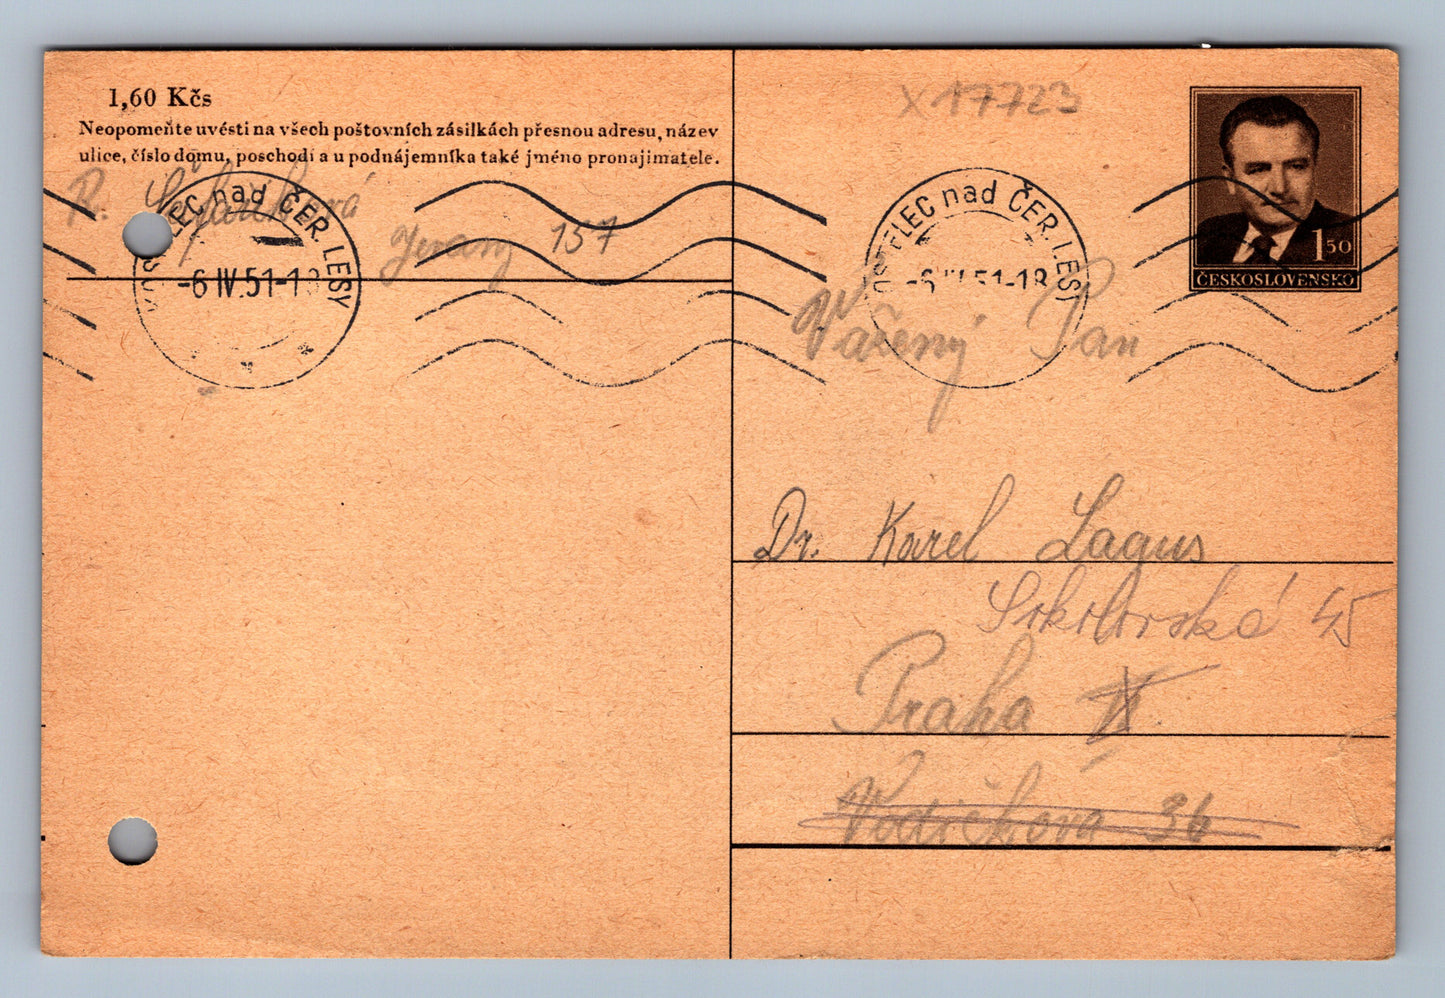 1,60 Kčs
Neopomeňte uvésti na všech poštovních zásilkách přesnou adresu, název
ulice, číslo domu, poschodí a u podnájemníka také jméno pronajimatele.
R.
Jevany 157
KOSTELEC nad ČER. LESY
-6 IV.51-18
X 17723
OSTELEC nad ČER. LESY
-6 IV.51-18
1 50
ČESKOSLOVENSKO
Vážený Pan
Dr. Karel Lagus
Sokolovská 45
Praha II.
Vodičkova 36